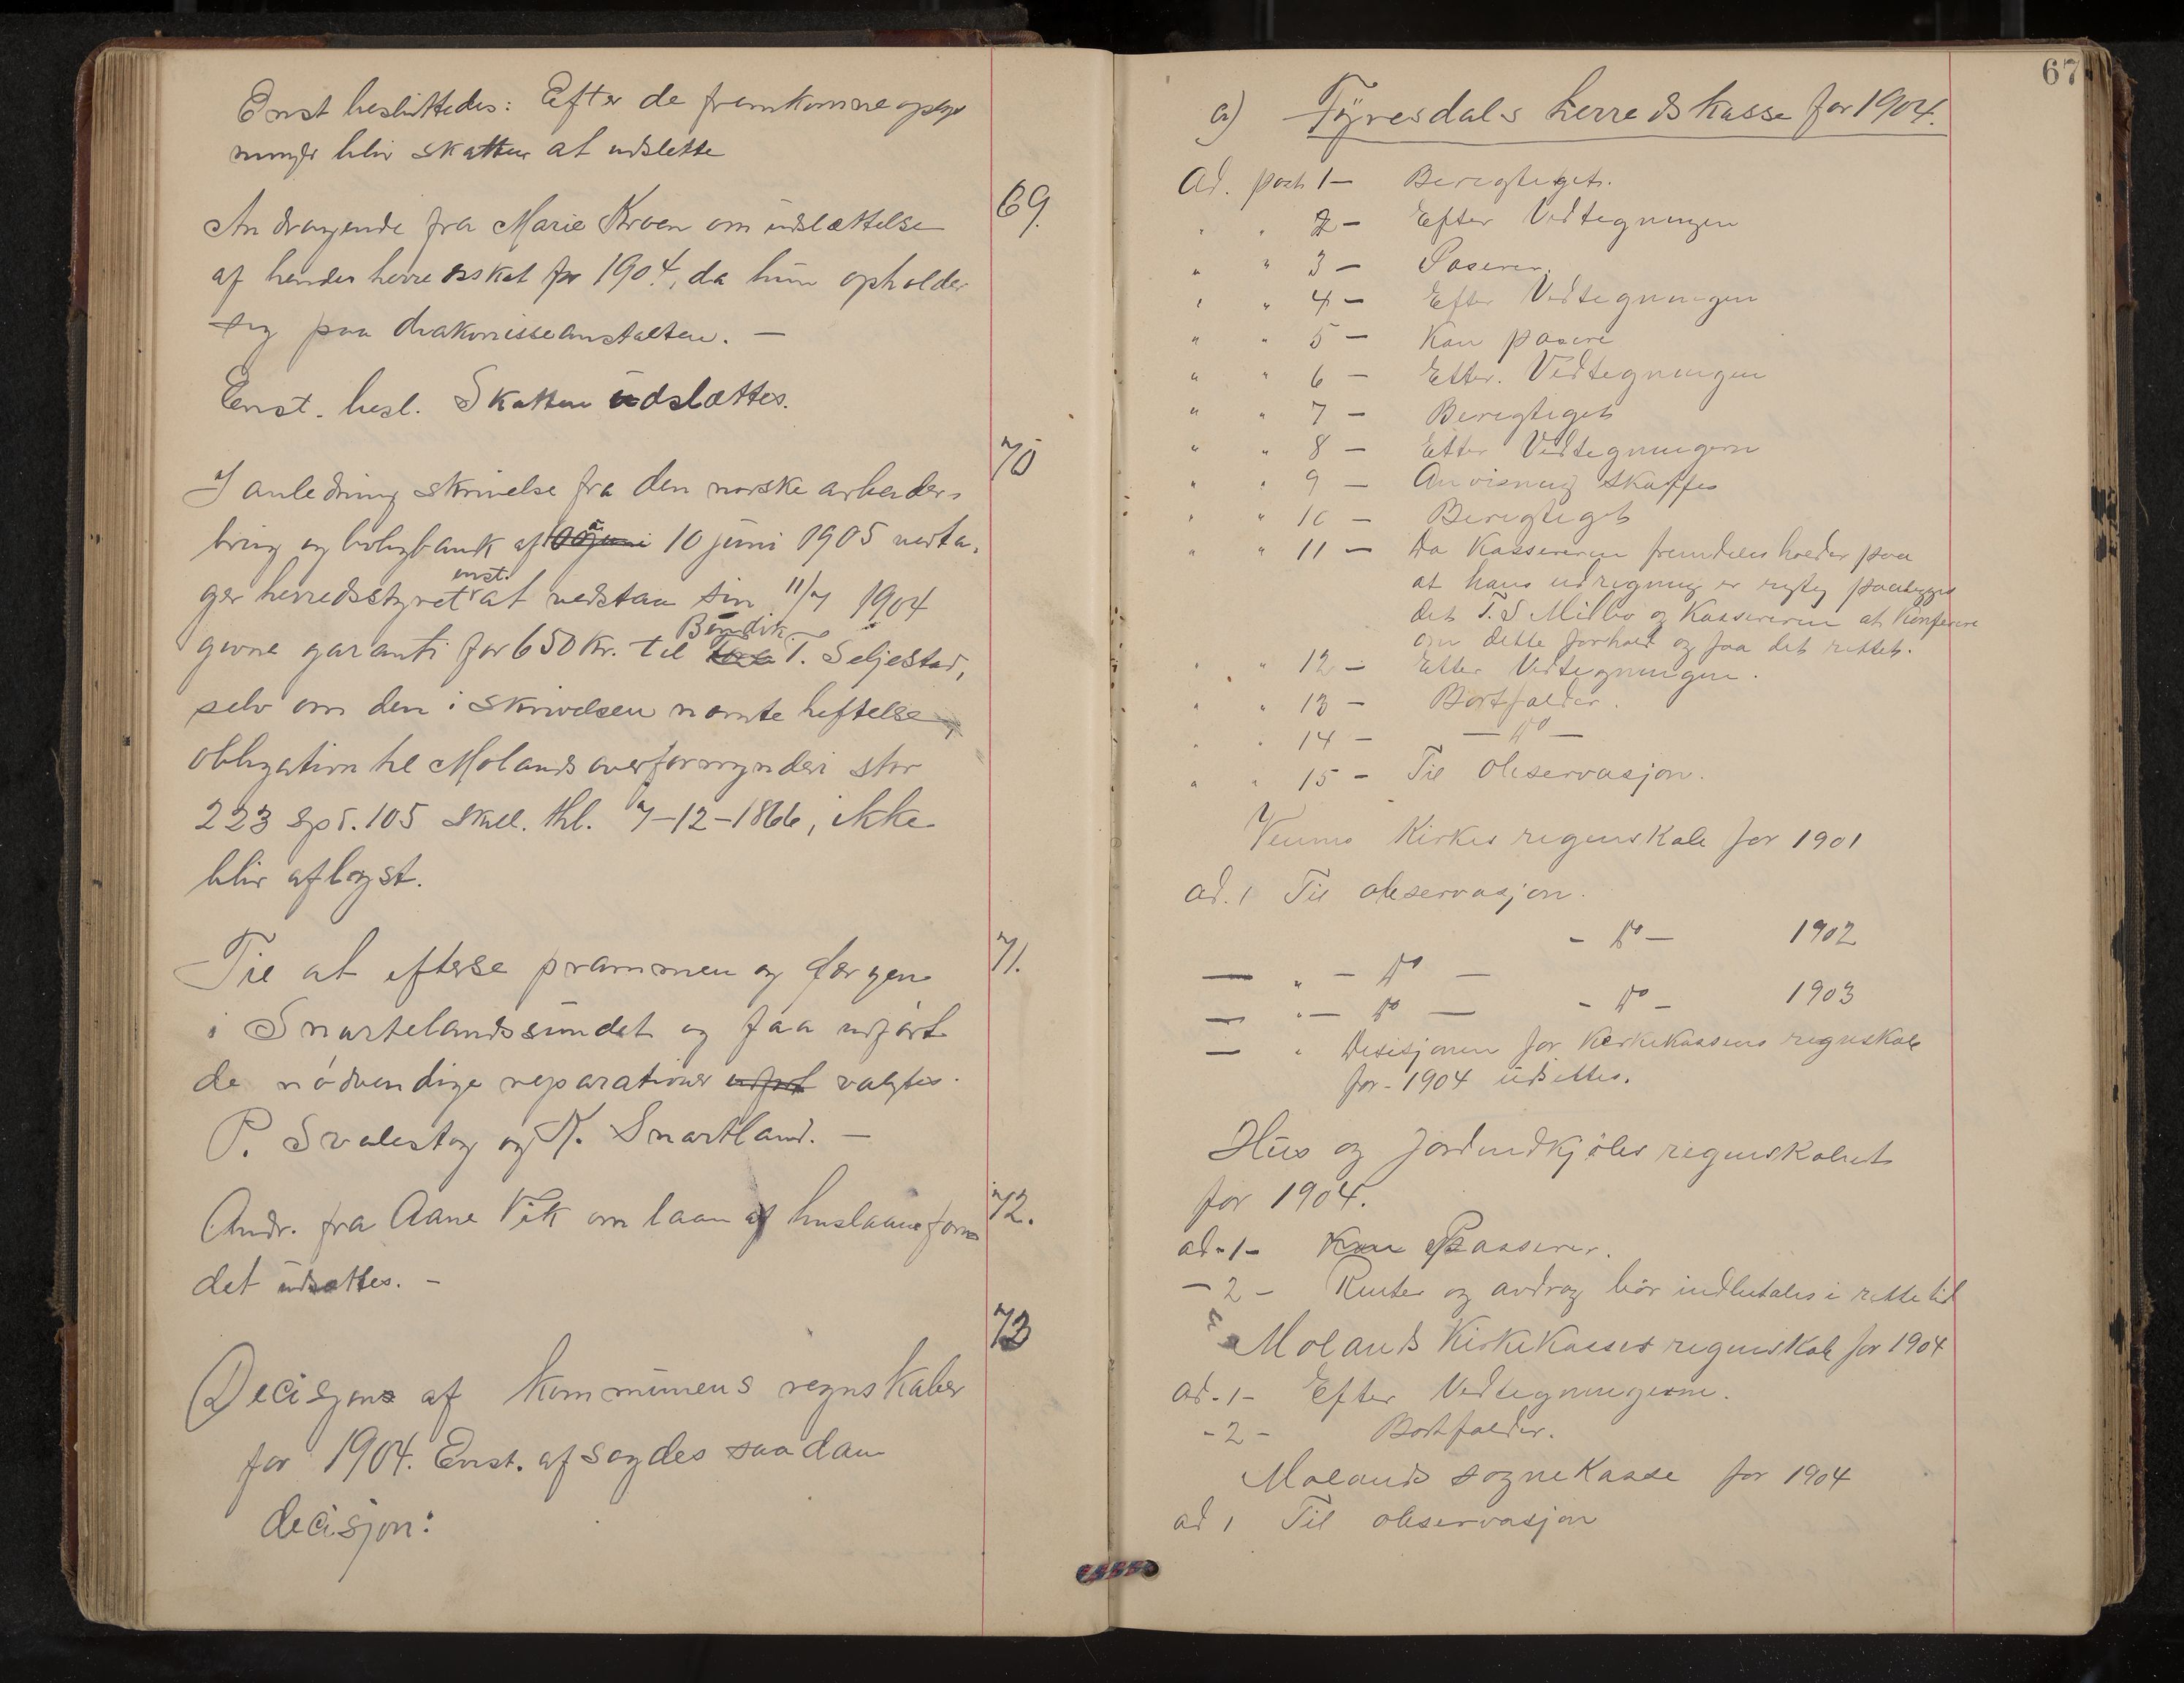 Enst besluttedes: Efter de fremkomne oplys
ninger blir skatten at udslette
69.
Andragende fra Marie Kroen om udslættelse
af hendes herredsskat for 1904, da hun opholder
sig paa diakonisseanstalten. —
Enst. besl. Skatten udslættes.
70
I anledning skrivelse fra den norske arbeider-
brug og boligbank af 10 juni 1905 vedta-
ger herredsstyret enst. at vedstaa sin 11/7 1904
givne garanti for 650 kr. til Bendik T. Seljestad,
selv om den i skrivelsen nævnte heftelse,
obligation til Molands overformynderi stor
223 spd. 105 skill. thl. 7-12-1866, ikke
blir aflyst.
71.
Til at efterse prammen og færgen
i Snartelandssundet og faa udført
de nødvendige reparationer valgtes.
P. Svalestog og K. Snartland. —
72.
Andr. fra Aane Vik om laan af huslaanefon
det udsættes. —
73
Decisjons af kommunens regnskaber
for 1904. Enst. afsagdes saadan
decisjon:
67
a) Tyresdals herredskasse for 1904.
Ad. post 1 — Berigtiget.
" " 2 — Efter Vedtegningen
" " 3 — Paserer.
" " 4 — Efter Vedtegningen
" " 5 — Kan pasere
" " 6 — Etter. Vedtegningen
" " 7 — Berigtiget
" " 8 — Etter Vedtegningen
" " 9 — Anvisning skaffes
" " 10 — Berigtiget
" " 11 — Da Kassereren fremdeles holder paa
at hans udregning er rigtig paalegges
det T. S Millio og Kassereren at konferere
om dette forhold og faa det rettet.
" " 12 — Etter Vedtegningen.
" " 13 — Bortfalder.
" " 14 — — do —
" " 15 — Til observasjon.
Veumo Kirkes regnskab for 1901
ad. 1 Til observasjon.
— do — 1902
— " — do —
— do — 1903
— " — do —
— " Desisjonen for Kirkekassens regnskab
for 1904 udsettes.
Hus og Jordindkjøbs regnskabet
for 1904.
ad. 1 — Passerer.
— 2 — Renter og avdrag bør indbetales i rette tid
Molands Kirkekasses regnskab for 1904
ad. 1 — Efter Vedtegningerne.
- 2 — Bortfalder.
Molands sognekasse for 1904
ad 1 Til observasjon